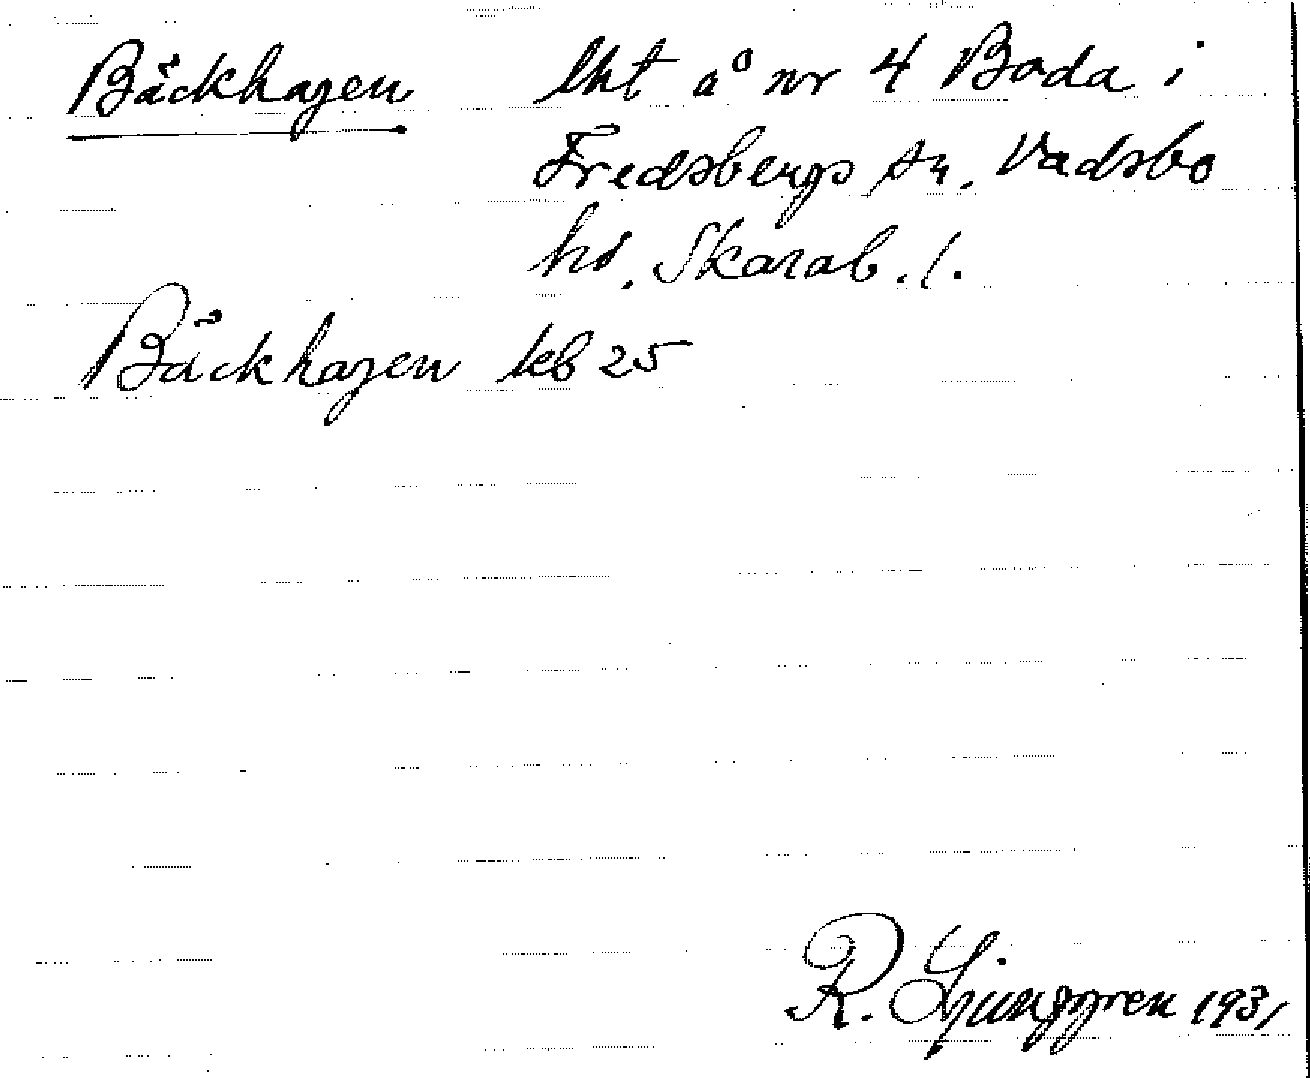 Bäckhagen lht å nr 4 Boda i
Fredsbergs sn. Vadsbo
hd. Skarab. l.
Bäckhagen kb 25
R. Ljunggren 1931